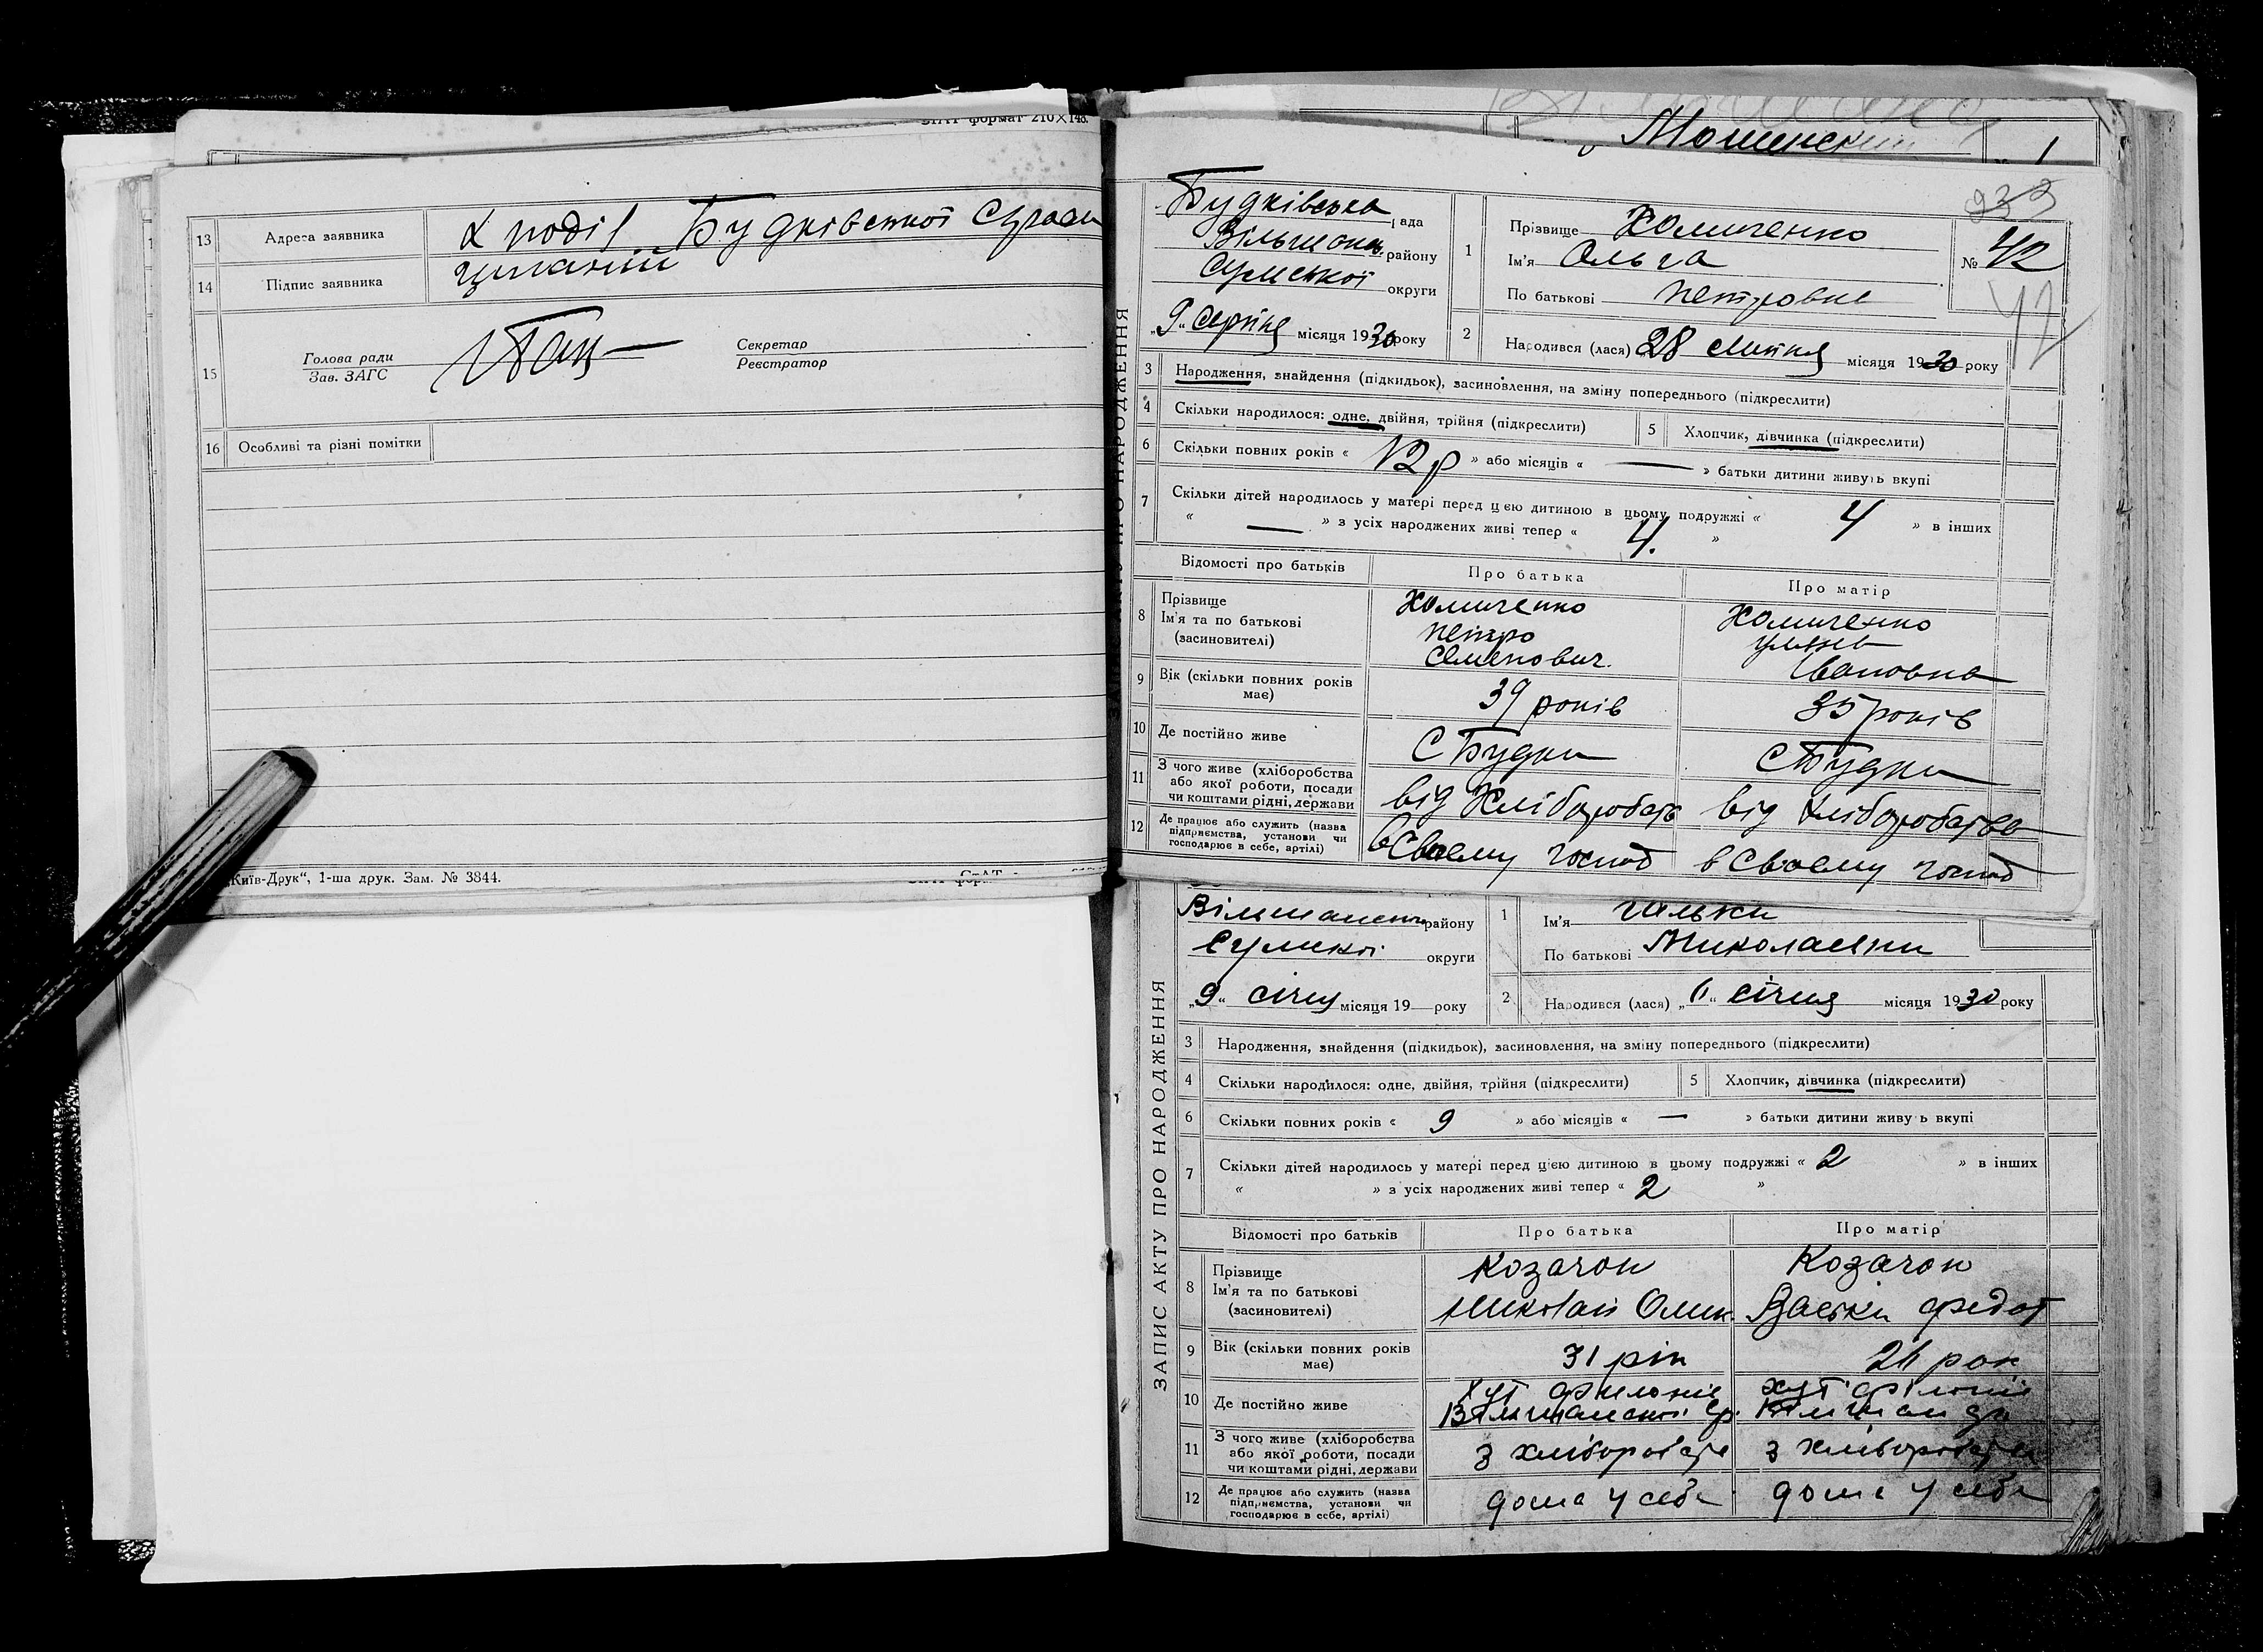 13 Адреса заявника Х поділ Будківської С/ради
14 Підпис заявника
15 Голова ради
Зав. ЗАГС
Секретар
Реєстратор
16 Особливі та різні помітки
„Київ-Друк“, 1-ша друк. Зам. № 3844.
СтАТ формат 210×148.
1
ЗАПИС АКТУ ПРО НАРОДЖЕННЯ
Будківська рада
району
Сумської округи
„9“ серпня місяця 1930 року
1 Прізвище Хомиченко
Ім'я Ольга
По батькові Петровна
933
№ 42
42
2 Народився (лася) „28 липня місяця 1930 року
3 Народження, знайдення (підкидьок), засиновлення, на зміну попереднього (підкреслити)
4 Скільки народилося: одне, двійня, трійня (підкреслити) 5 Хлопчик, дівчинка (підкреслити)
6 Скільки повних років « 12 р » або місяців « — » батьки дитини живуть вкупі
7 Скільки дітей народилось у матері перед цією дитиною в цьому подружжі « 4 » в інших
« — » з усіх народжених живі тепер « 4. »
Відомості про батьків Про батька Про матір
8 Прізвище Хомиченко Хомиченко
Ім'я та по батькові Петро
(засновителі) Семенович. Івановна
9 Вік (скільки повних років має) 39 років 35 років
10 Де постійно живе С Будки С Будки
11 З чого живе (хліборобства
або якої роботи, посади
чи коштами рідні, держави від Хліборобств від Хліборобства
12 Де працює або служить (назва
підприємства, установи чи
господарює в себе, артілі) в Своему господ в Своему господ
району
округи
„9“ січня місяця 19 року
1 Ім'я
По батькові Миколаевни
2 Народився (лася) „ “ січня місяця 1930 року
ЗАПИС АКТУ ПРО НАРОДЖЕННЯ
3 Народження, знайдення (підкидьок), засиновлення, на зміну попереднього (підкреслити)
4 Скільки народилося: одне, двійня, трійня (підкреслити) 5 Хлопчик, дівчинка (підкреслити)
6 Скільки повних років « 9 » або місяців « — » батьки дитини живуть вкупі
7 Скільки дітей народилось у матері перед цією дитиною в цьому подружжі « 2 » в інших
« » з усіх народжених живі тепер « 2 »
Відомості про батьків Про батька Про матір
8 Прізвище Козачок Козачок
Ім'я та по батькові
(засиновителі) Миколай Федот
9 Вік (скільки повних років має) 31 рік рок
10 Де постійно живе хут хут
11 З чого живе (хліборобства
або якої роботи, посади
чи коштами рідні, держави з хліборобств з хліборобств
12 Де працює або служить (назва
підприємства, установи чи
господарює в себе, артілі) дома у себе дома у себе